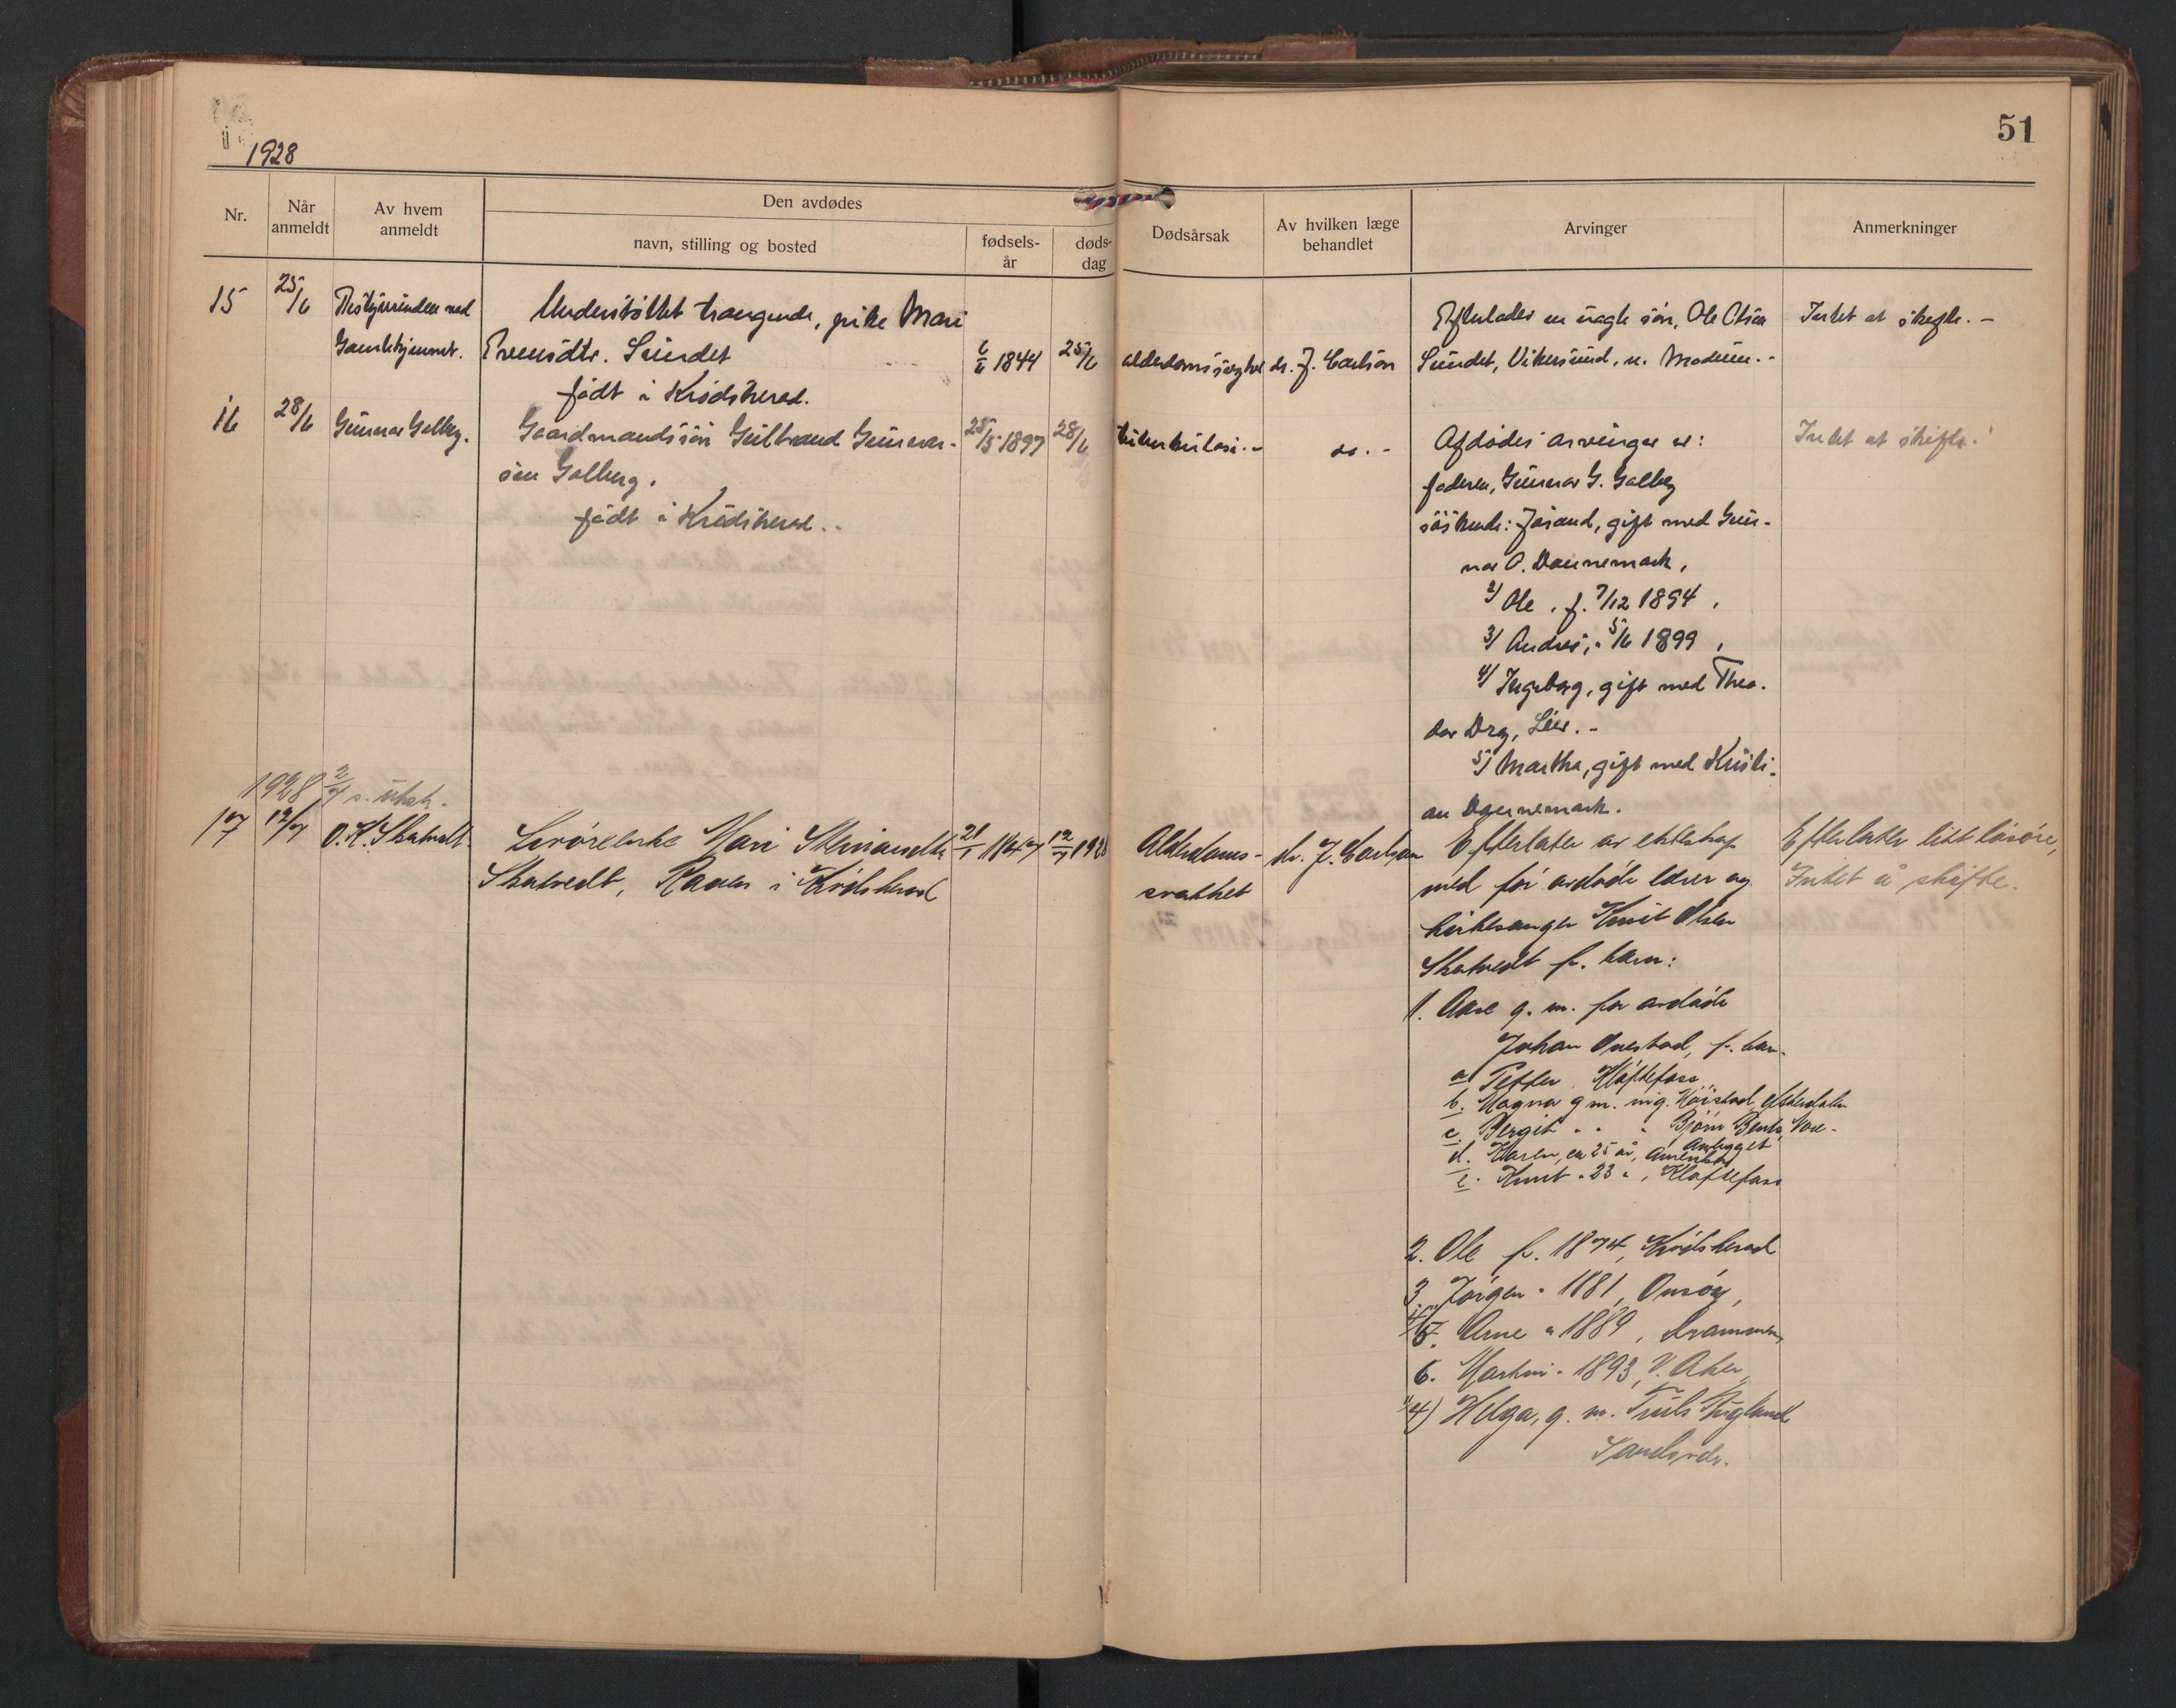 1928
51
Nr.
Når anmeldt
Av hvem anmeldt
Den avdødes
navn, stilling og bosted
fødsels-år
døds-dag
Dødsårsak
Av hvilken læge behandlet
Arvinger
Anmerkninger
15 25/6 Bestyrerinden ved
Gamlehjemmet.
Understøttet trængende, pike Mari
Evensdtr. Sundet
født i Krødsherad.
6/6 1844 25/6 alderdomssvaghet dr. J. Carlson
Efterlader en uægte søn, Ole Olsen
Sundet, Vikersund, n. Modum.-
Intet at skifte.-
16 28/6 Gunnar Golberg.
Gaardmandssøn Gulbrand Gunnar-
sen Golberg.
født i Krødsherad.
25/5 1897 28/6 tuberkulose.- do.-
Afdødes arvinger er:
faderen, Gunnar G. Golberg
søskende: Jørand, gift med Gun-
nar O. Dannemark,
2) Ole, f. 7/12 1894,
3) Andres, " 5/6 1899,
4) Ingeborg, gift med Theo-
dor Drg, Lier.-
5) Martha, gift med Kristi-
an Dannemark.
Intet at skifte.
1928 2/7 s. utsk.
17 12/7 O. K. Skatvedt
Lærerenke Mari Steinarsdtr
Skatvedt, Raaen i Krødsherad
21/1 1847 12/7 1928
Alderdoms-
svakhet
dr. J. Carlson
Efterlater av ekteskap
med før avdøde lærer og
kirkesanger Knut Olsen
Skatvedt f. barn:
1. Aase g. m. før avdøde
Johan Onestad, f. barn
a Petter, Kløftefoss
b. Magna g. m. ing. Høistad, Østerdalen
c. Bergit " " " Bjørn Bentz, Nore-
Anlegget
d. Karen, ca 25 år, Amerika
e. Knut " 23 ", Kløftefoss
2. Ole f. 1874, Krødsherad
3. Jørgen " 1881, Onsøy,
5. Arne " 1889, Drammen,
6. Martin " 1893, V. Aker,
4) Helga, g. m. Truls Fuglund
Sandsvdr.
Efterlater litt løsøre,
Intet å skifte.